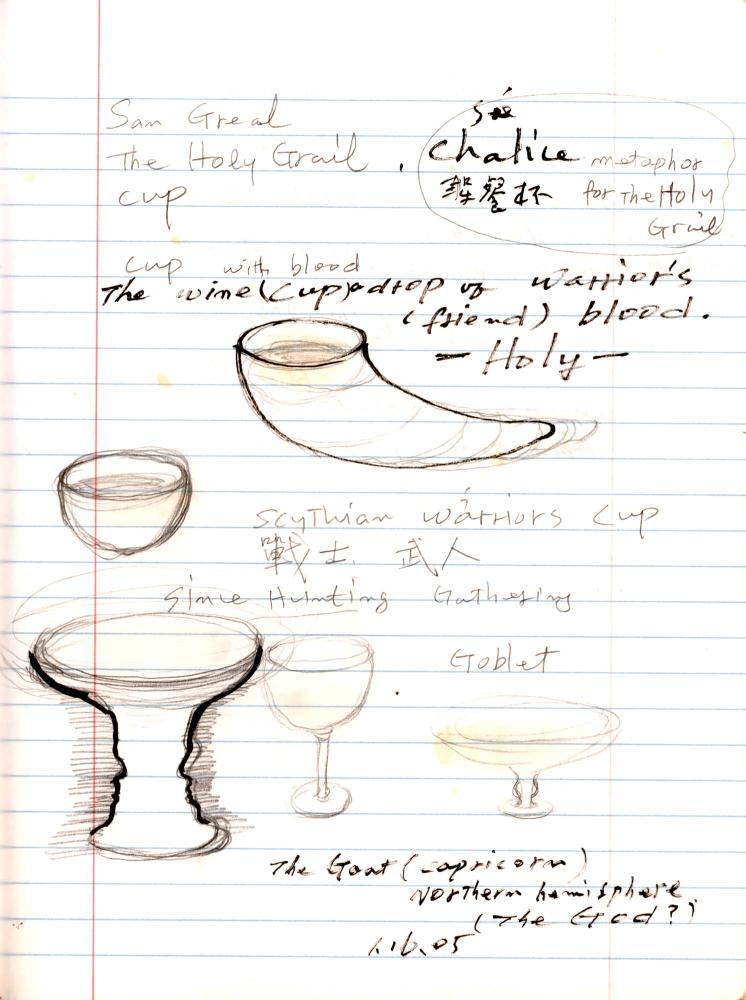 San Greal
The Holy Grail .
cup
chalice metaphor
聖餐杯 for The Holy
Grail
cup with blood
The wine (cup) a drop of warrior's
(friend) blood.
— Holy —
Scythian warriors cup
戰士. 武人
Since Hunting Gathering
Goblet
The Goat (capricorn)
Northern hemisphere
(The God?)
1.16.05